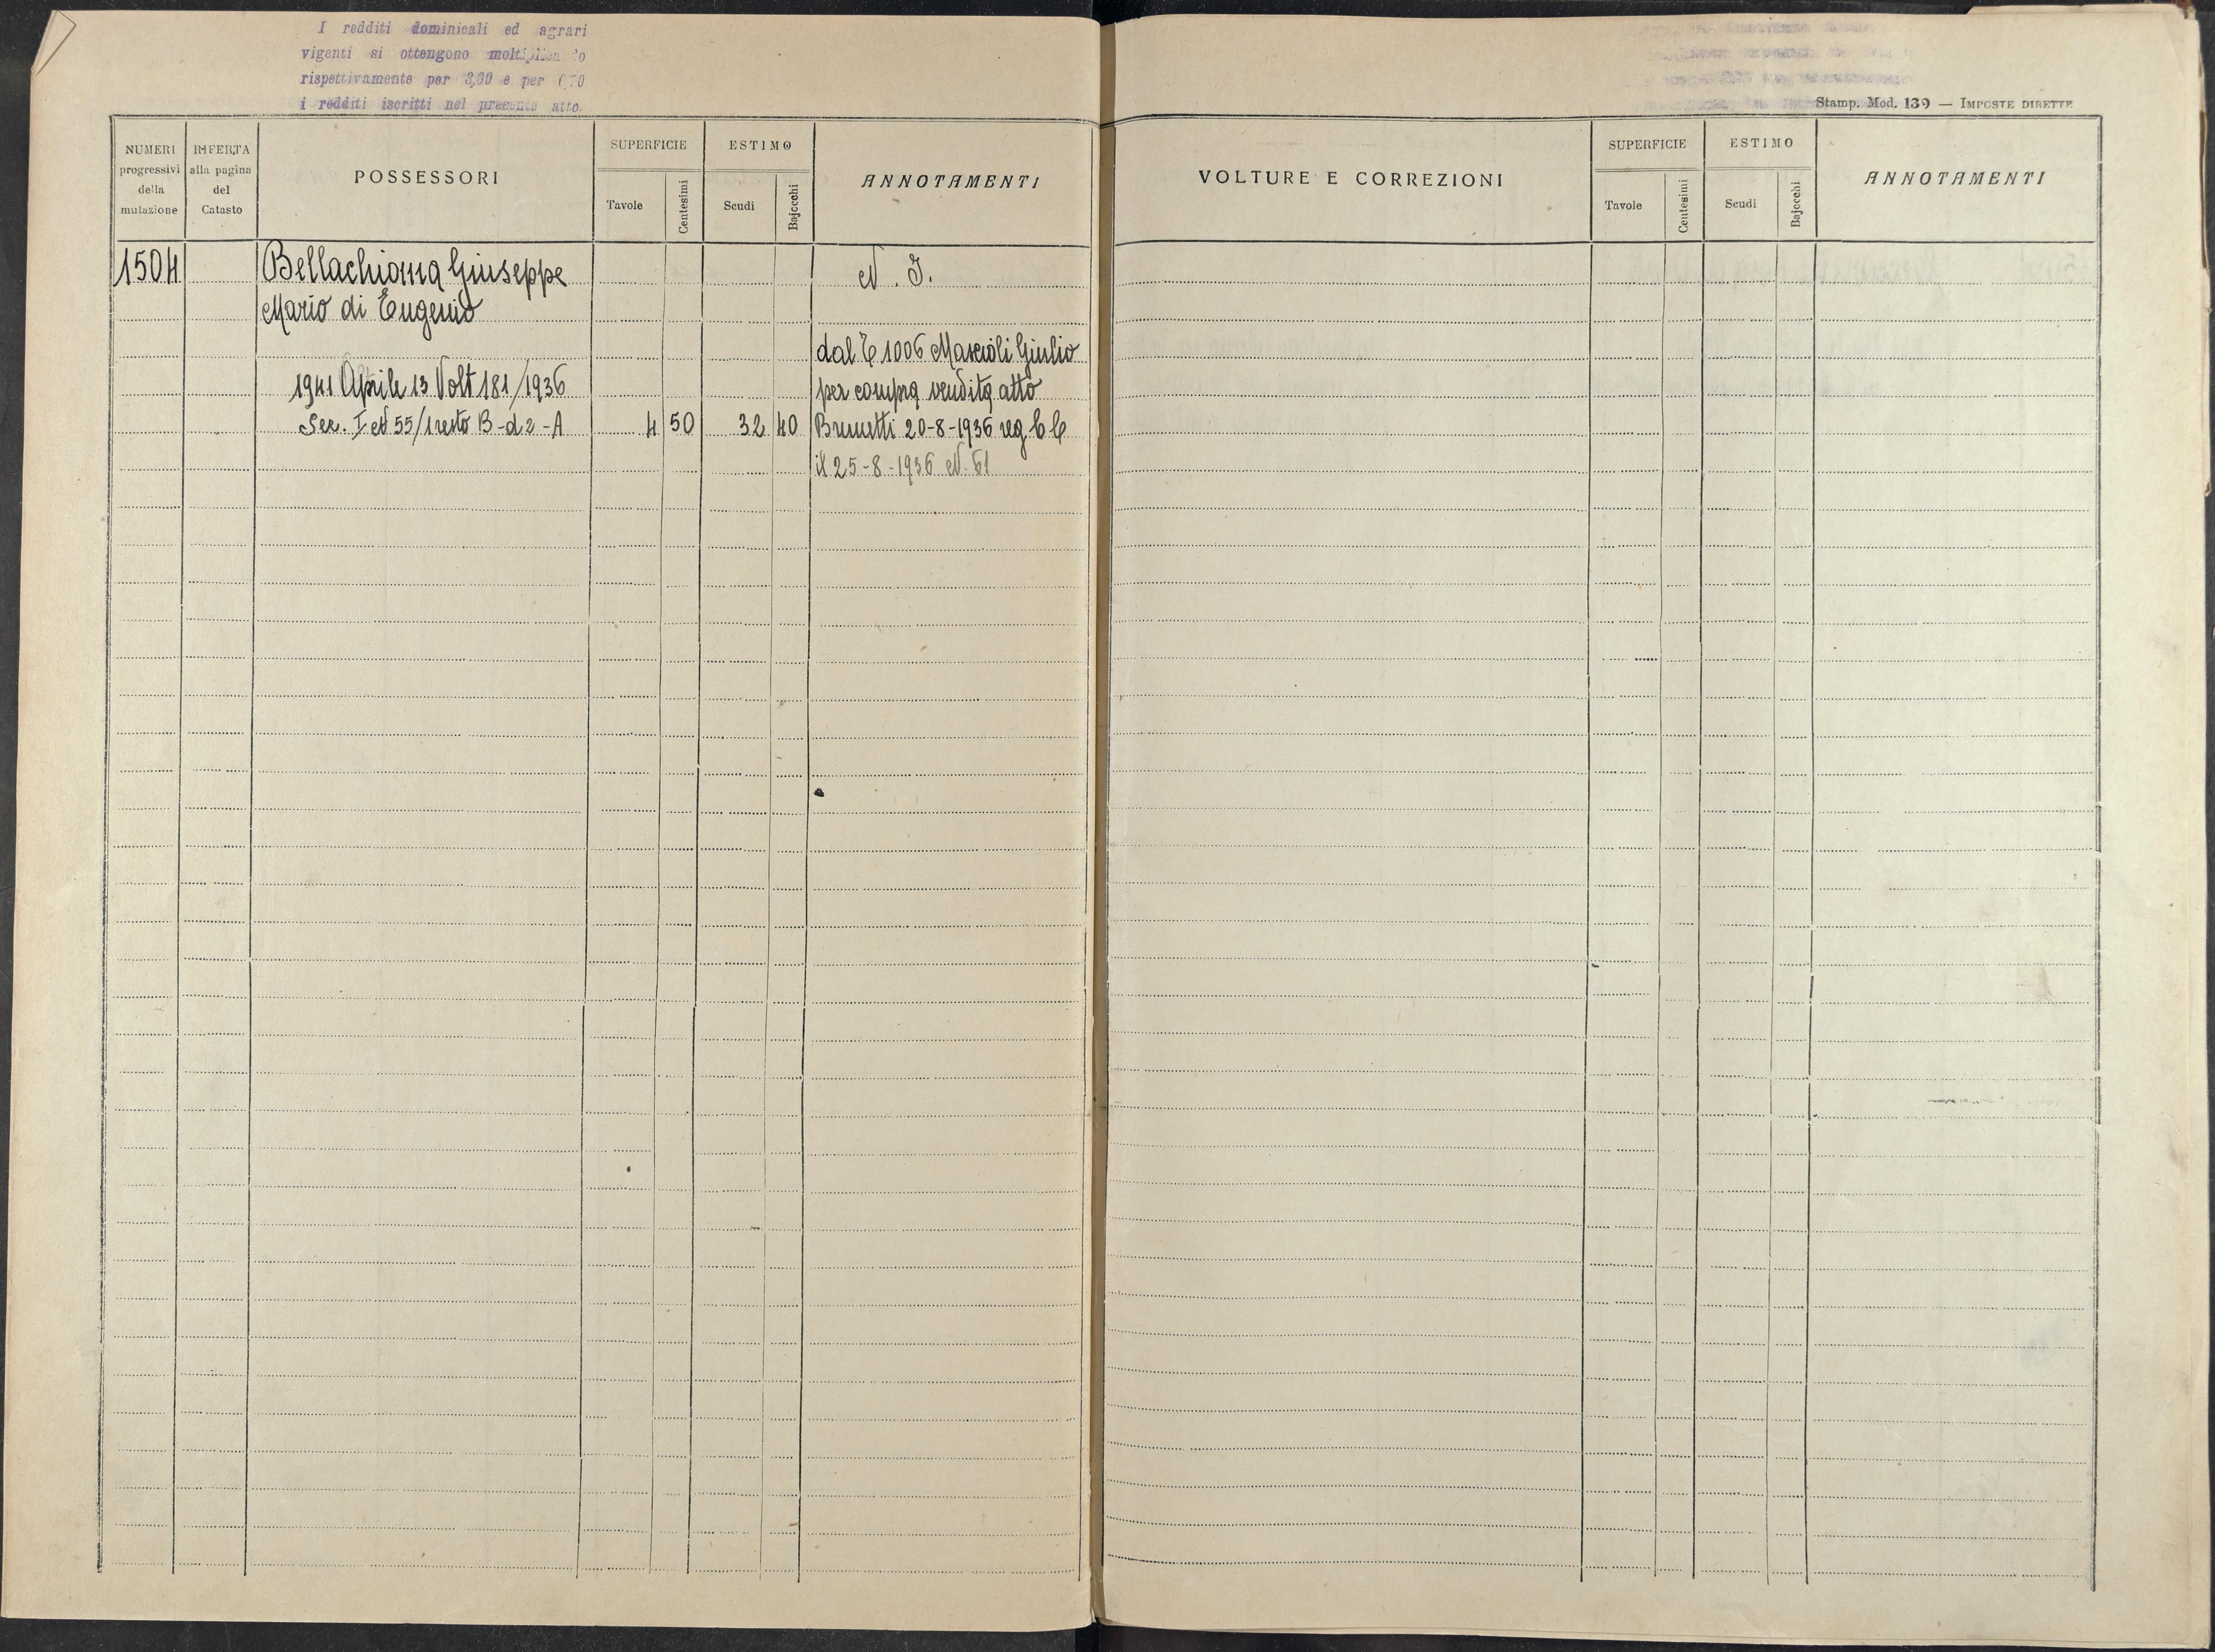 I redditi dominicali ed agrari
vigenti si ottengono
rispettivamente per 3,60 e per
i redditi iscritti nel presente atto.
Stamp. Mod. 139 — IMPOSTE DIRETTE
NUMERI progressivi della mutazione
RIFERTA alla pagina del Catasto
POSSESSORI
SUPERFICIE
Tavole
Centesimi
ESTIMO
Scudi
Bajocchi
ANNOTAMENTI
VOLTURE E CORREZIONI
SUPERFICIE
Tavole
Centesimi
ESTIMO
Scudi
Bajocchi
ANNOTAMENTI
1504 Bellachioma Giuseppe N. I.
Mario di Eugenio
dal 1006 Mascioli Giulio
1941 Aprile 13 Volt 181/1936 per compra vendita atto
Sez. I N 55/1 resto B-d2-A 4 50 32 40 Brunetti 20-8-1936 reg.
il 25-8-1936 N. 61